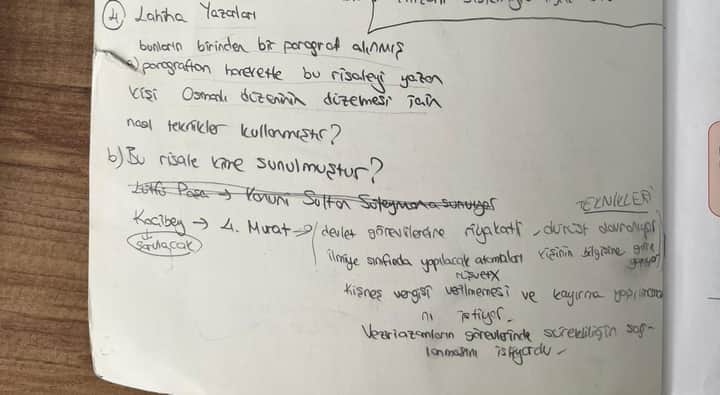 4. Lahiha Yazarları
bunların birinden bir paragraf alınmış
a) paragraftan hareketle bu risaleyi yazan
kişi Osmanlı düzeninin düzelmesi için
nasıl teknikler kullanmıştır?
b) Bu risale kime sunulmuştur?
Lütfi Paşa → Kanuni Sultan Süleymana sunuyor
TEKNİKLERİ
Koçibey → 4. Murat → devlet görevlilerine riyakatli, dürüst davranıyor
sorulacak
ilmiye sınıfında yapılacak atamaları kişinin bilgisine göre yapıyor
rüşvet X
vergisi verilmemesi ve kayırma
nı istiyor.
Veziriazamların görevlerinde sürekliliğin sağ-
lanmasını istiyordu.